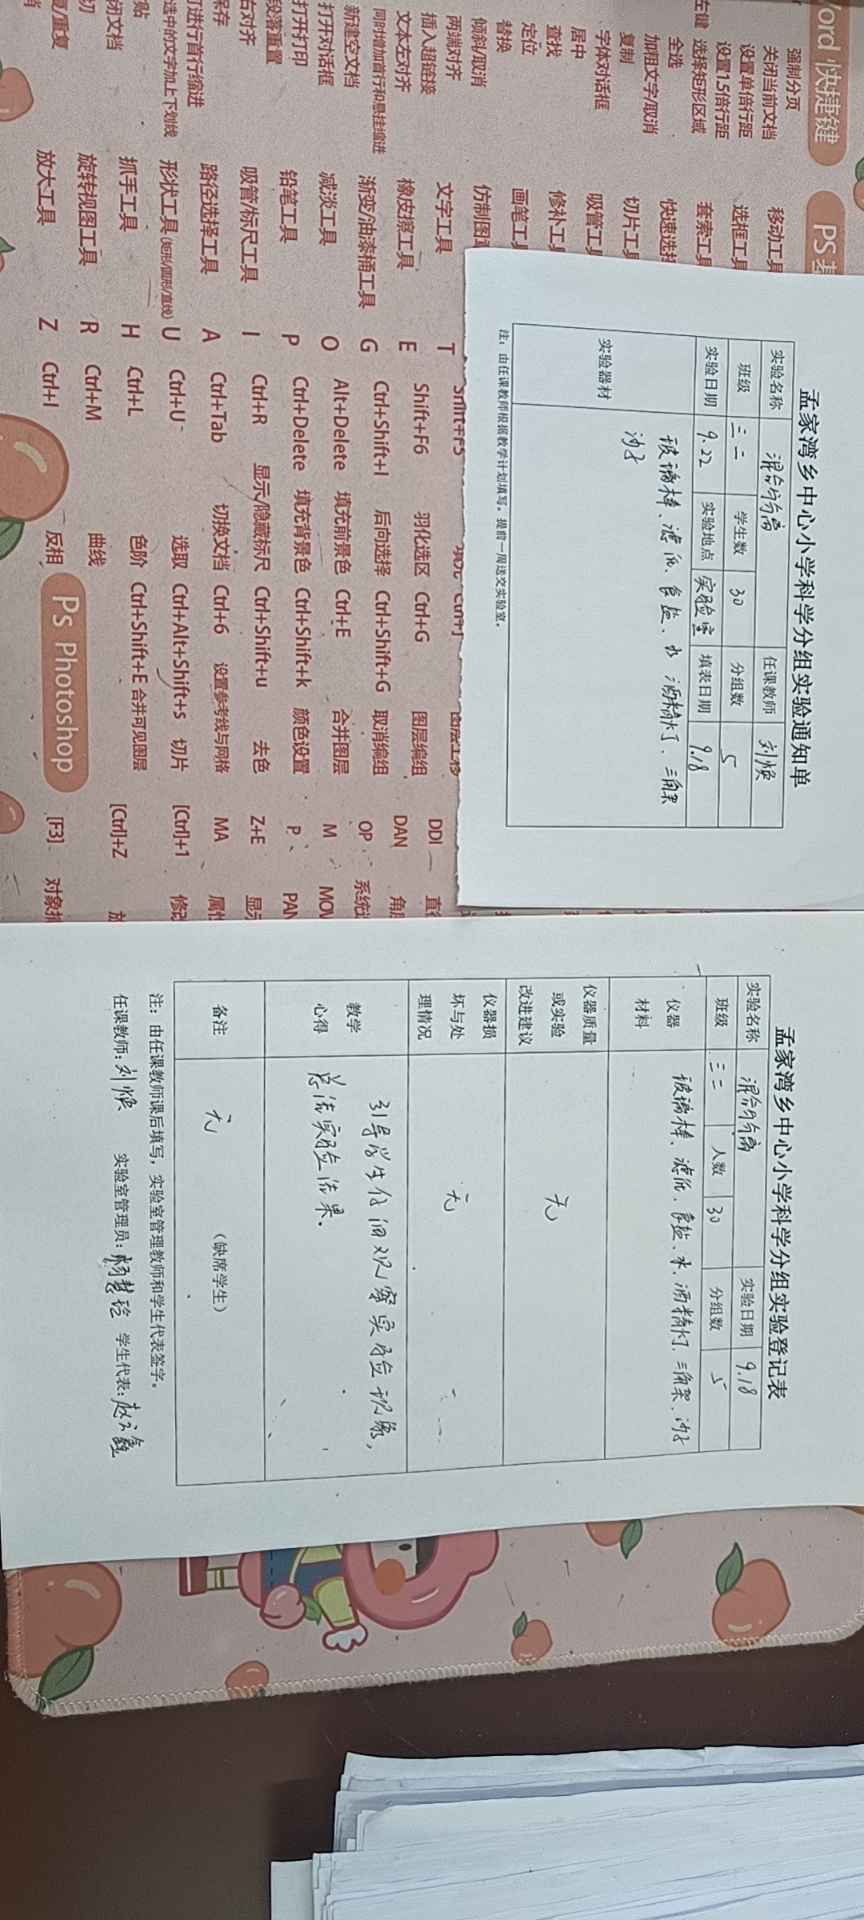 孟家湾乡中心小学科学分组实验通知单
实验名称 混合与分离 任课教师 刘焕
班级 三二 学生数 30 分组数 5
实验日期 9.22 实验地点 实验室 填表日期 9.18
实验器材 玻璃棒、滤纸、食盐、水、酒精灯、三角架
沙子
注：由任课教师根据教学计划填写，提前一周送交实验室。
孟家湾乡中心小学科学分组实验登记表
实验名称 混合与分离 实验日期 9.18
班级 三二 人数 30 分组数 5
仪器
材料
玻璃棒、滤纸、食盐、水、酒精灯、三角架、沙子
仪器质量
或实验
改进建议
无
仪器损
坏与处
理情况
无
教学
心得
引导学生仔细观察实验现象，
总结实验结果。
备注 无 （缺席学生）
注：由任课教师课后填写，实验室管理教师和学生代表签字。
任课教师：刘焕 实验室管理员： 学生代表：
Word 快捷键
强制分页
关闭当前文档
设置单倍行距
设置1.5倍行距
左键 选择矩形区域
全选
加粗文字/取消
复制
字体对话框
居中
查找
定位
替换
倾斜/取消
两端对齐
插入超链接
文本左对齐
同时增加首行和悬挂缩进
新建空文档
打开对话框
打开打印
段落重置
右对齐
保存
可进行首行缩进
选中的文字加上下划线
闭文档
移动工具
选框工具
套索工具
快速选择
切片工具
吸管工具
修补工具
画笔工具
仿制图章
文字工具 T Shift+F5
橡皮擦工具 E Shift+F6 羽化选区 Ctrl+G 图层编组 DAN
渐变/油漆桶工具 G Ctrl+Shift+I 后向选择 Ctrl+Shift+G 取消编组 OP
减淡工具 O Alt+Delete 填充前景色 Ctrl+E 合并图层 M MOV
铅笔工具 P Ctrl+Delete 填充背景色 Ctrl+Shift+k 颜色设置 P PAN
吸管/标尺工具 I Ctrl+R 显示/隐藏标尺 Ctrl+Shift+u 去色 Z+E
路径选择工具 A Ctrl+Tab 切换文档 Ctrl+6 设置参考线与网格 MA
形状工具(矩形/圆形/直线) U Ctrl+U 选取 Ctrl+Alt+Shift+s 切片 [Ctrl]+1
抓手工具 H Ctrl+L 色阶 Ctrl+Shift+E 合并可见图层 [Ctrl]+Z
旋转视图工具 R Ctrl+M 曲线
放大工具 Z Ctrl+I 反相 Ps Photoshop [F3] 对象捕
DDI